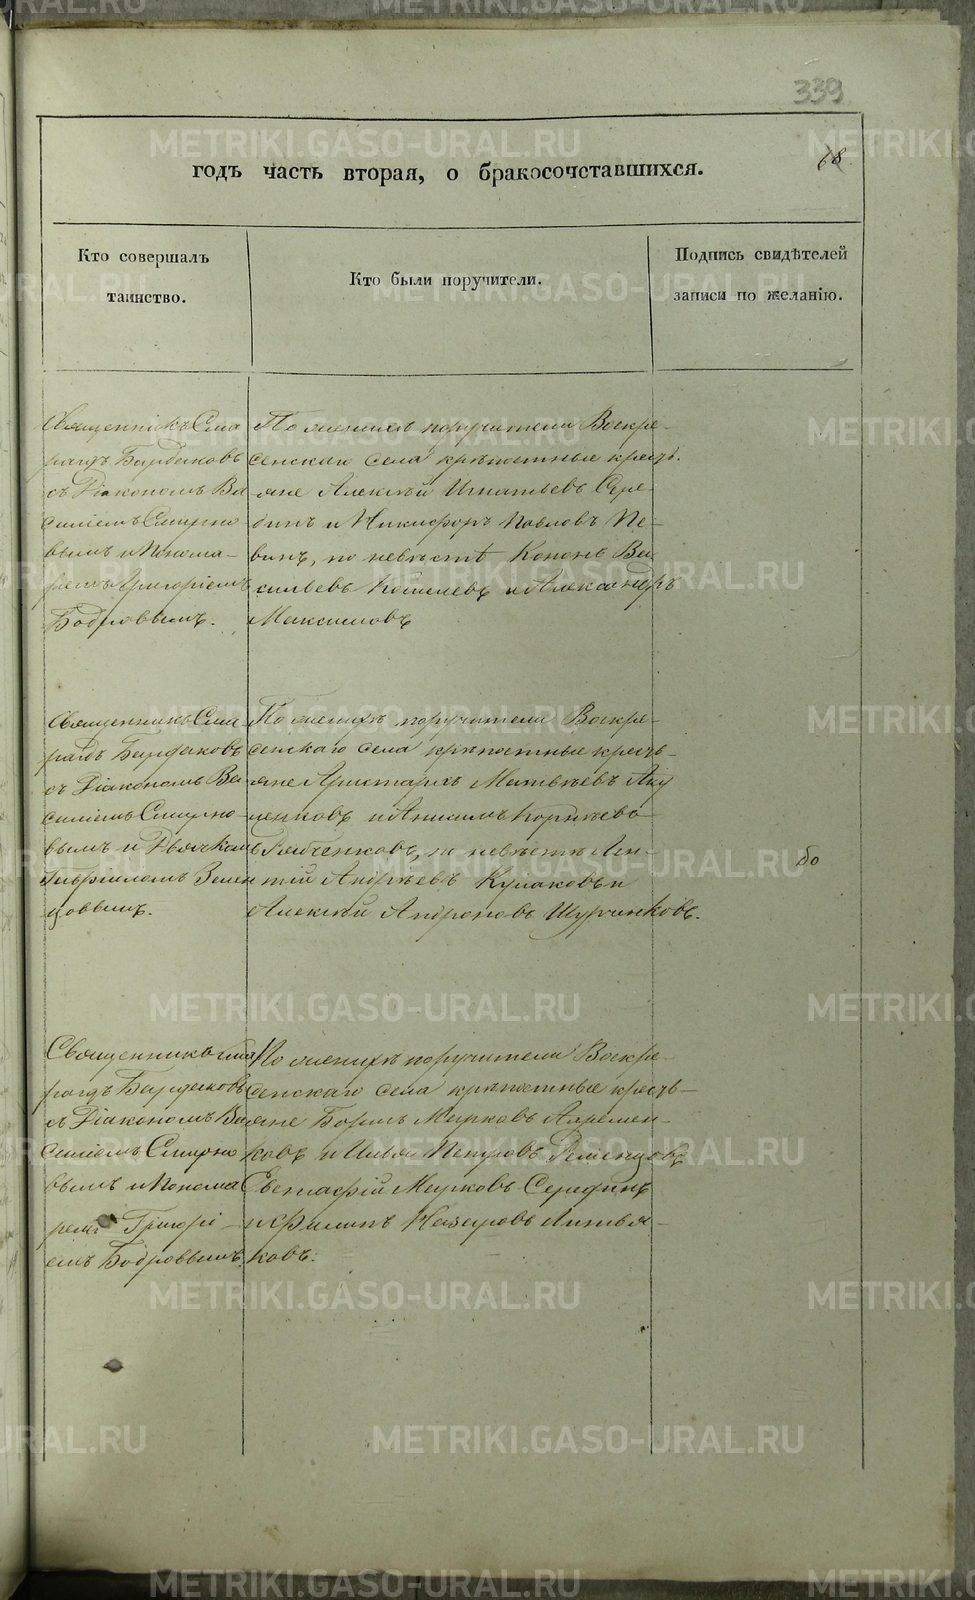 339
68
годъ часть вторая, о бракосочетавшихся.
Кто совершалъ
таинство.
Кто были поручители.
Подпись свидѣтелей
записи по желанію.
Священникъ Сма
рагдъ Бардаковъ
съ Діакономъ Ва
силіемъ Смирно
вымъ и Понома-
ремъ Григоріемъ
Бобровымъ.
По женихѣ поручители Воскре-
сенскаго села крѣпостные кресть-
яне Алексѣй Игнатьевъ Сере-
бинъ и Никифоръ Павловъ Пе-
винъ, по невѣстѣ Кононъ Ва
сильевъ Кошелевъ и Александръ
Максимовъ
Священникъ Сма-
рагдъ Бардаковъ
съ Діакономъ Ва-
силіемъ Смирно-
вымъ и Дьячкомъ
Гавріиломъ Земен
цовымъ.
По женихѣ поручители Воскре-
сенскаго села крѣпостные кресть-
яне Аристархъ Матвѣевъ
и Анисимъ Корнѣевъ
по невѣстѣ
Андреевъ Кулаковъ и
Алексѣй Андроновъ Шурчинковъ.
бо
Священникъ Сма
рагдъ Бардаковъ
съ Діакономъ Ва
силіемъ Смирно
вымъ и Понома
ремъ Григорі-
емъ Бобровымъ.
По женихѣ поручители Воскре-
сенскаго села крѣпостные кресть-
яне Борисъ Марковъ
ковъ и Илья Петровъ Ременцовъ
Евстафій Марковъ Серебинъ
и Филипъ Назаровъ Литвя-
ковъ.
METRIKI.GASO-URAL.RU